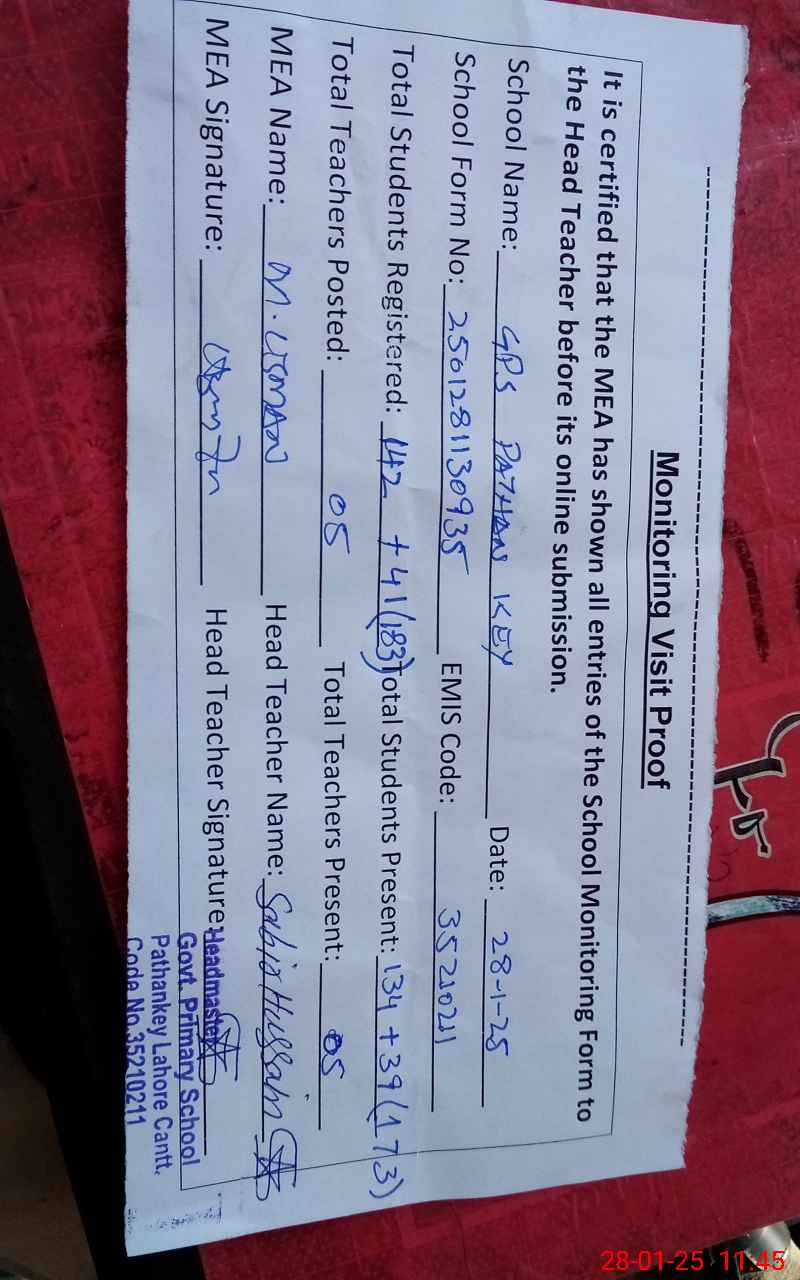 Monitoring Visit Proof
It is certified that the MEA has shown all entries of the School Monitoring Form to
the Head Teacher before its online submission.
School Name: GPS PATHAN KEY Date: 28-1-25
School Form No: 2501281130935 EMIS Code: 35210211
Total Students Registered: 142 + 41 (183) Total Students Present: 134 + 39 (173)
Total Teachers Posted: 05 Total Teachers Present: 05
MEA Name: M. USMAN Head Teacher Name: Sabir Hussain
MEA Signature: Head Teacher Signature:
Headmaster
Govt. Primary School
Pathankey Lahore Cantt.
Code No.35210211
28-01-25 11:45